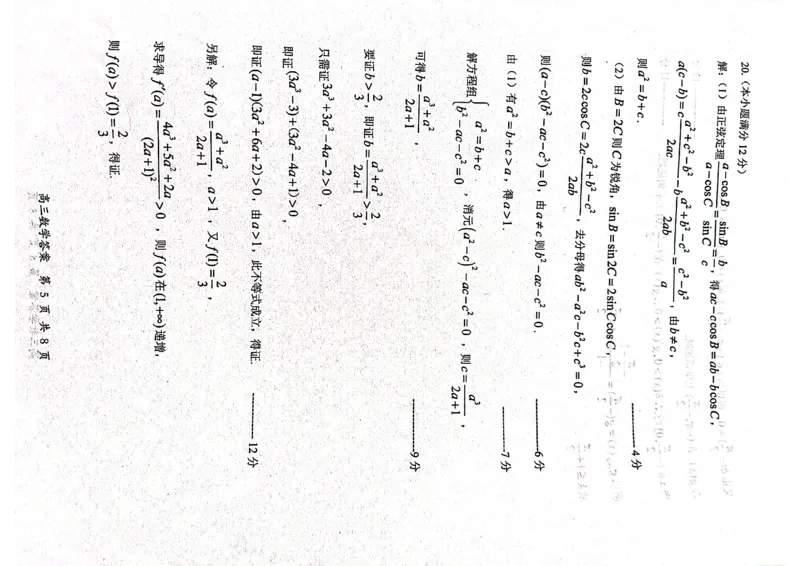 20.（本小题满分 12 分）
解：（1）由正弦定理 (a-cosB)/(a-cosC) = sinB/sinC = b/c，得 ac-ccosB=ab-bcosC，
a(c-b)=c·(a²+c²-b²)/(2ac) - b·(a²+b²-c²)/(2ab) = (c²-b²)/a，由 b≠c，
则 a²=b+c． ————4 分
（2）由 B=2C 则 C 为锐角，sinB=sin2C=2sinCcosC，
则 b=2ccosC=2c·(a²+b²-c²)/(2ab)，去分母得 ab²-a²c-b²c+c³=0，
则 (a-c)(b²-ac-c²)=0，由 a≠c 则 b²-ac-c²=0． ————6 分
由（1）有 a²=b+c>a，得 a>1． ————7 分
解方程组 { a²=b+c ; b²-ac-c²=0 ，消元 (a²-c)²-ac-c²=0，则 c=a³/(2a+1)，
可得 b=(a³+a²)/(2a+1)， ————9 分
要证 b>2/3，即证 b=(a³+a²)/(2a+1)>2/3，
只需证 3a³+3a²-4a-2>0，
即证 (3a³-3)+(3a²-4a+1)>0，
即证 (a-1)(3a²+6a+2)>0，由 a>1，此不等式成立，得证． ————12 分
另解：令 f(a)=(a³+a²)/(2a+1)，a>1，又 f(1)=2/3，
求导得 f′(a)=(4a³+5a²+2a)/(2a+1)²>0，则 f(a) 在 (1,+∞) 递增，
则 f(a)>f(1)=2/3，得证．
高三数学答案 第 5 页 共 8 页